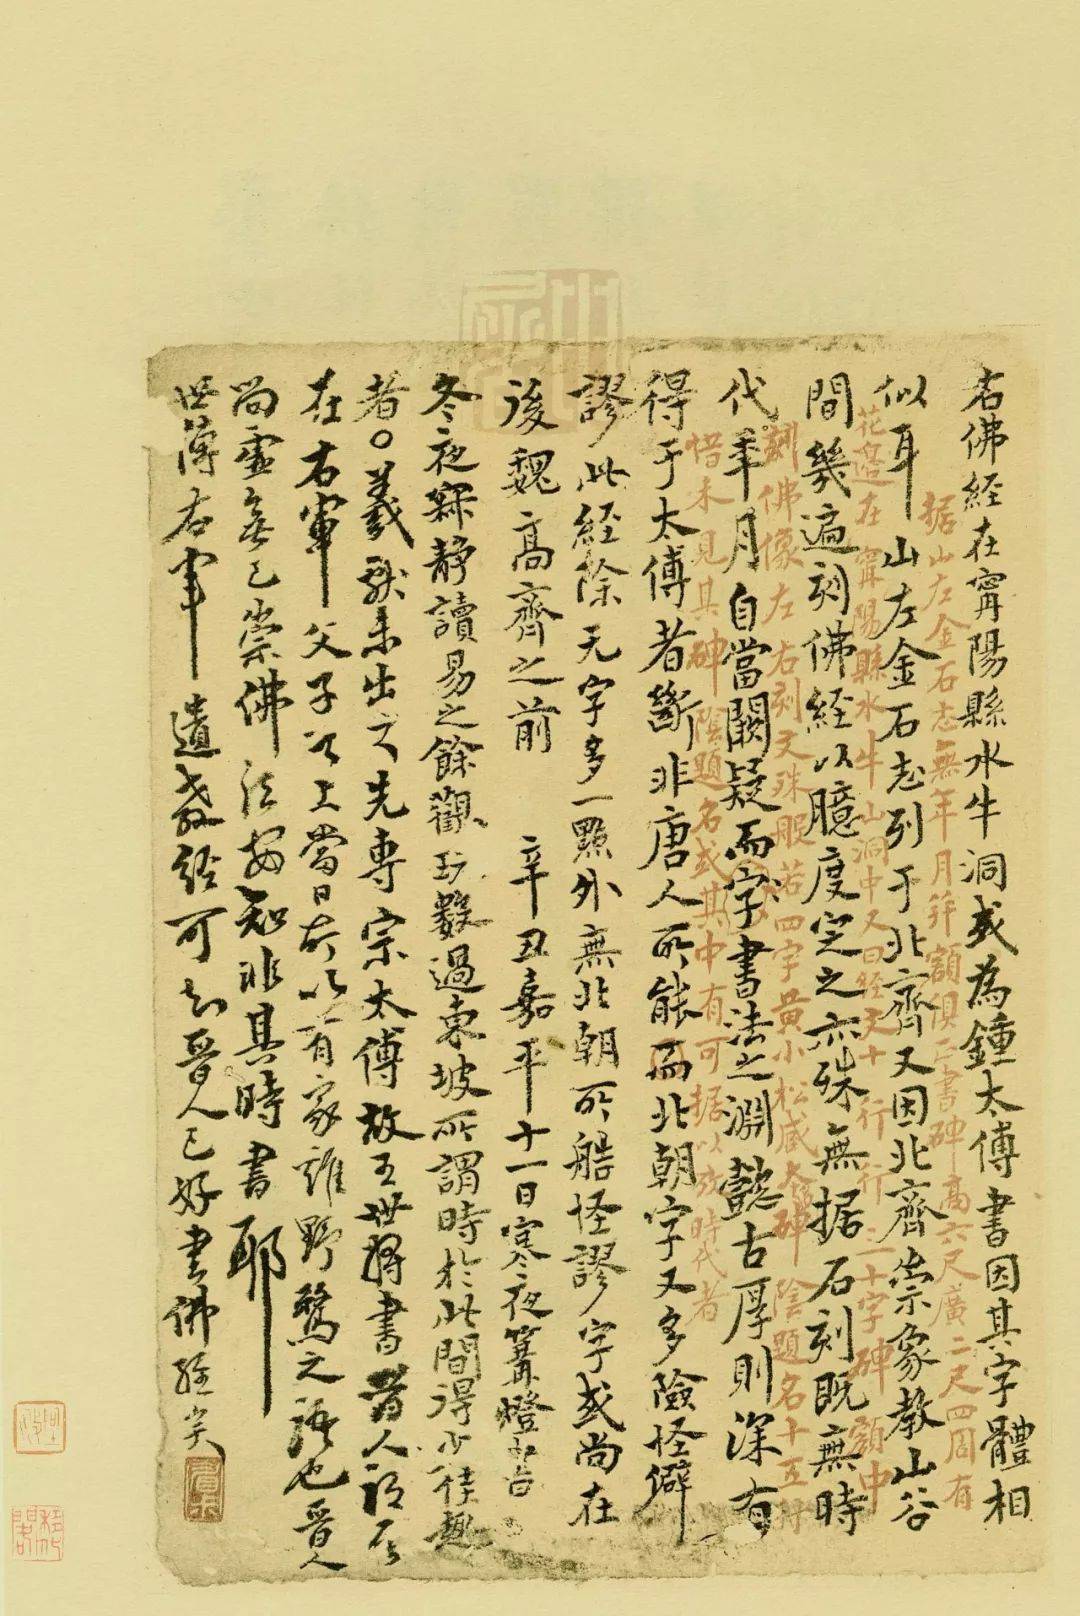 右佛經在甯陽縣水牛洞或為鍾太傅書因其字體相
據山左金石志無年月並額俱正書碑高六尺廣二尺四周有
似耳山左金石志列于北齊又因北齊崇象教山谷
花邊在甯陽縣水牛山洞中又曰經文十行行二十字碑額中
間幾遍刻佛經以臆度定之亦殊無据石刻既無時
刻佛像左右刻文殊般若四字黃小松藏本碑陰題名十五行
代年月自當闕疑而字書法之淵懿古厚則深有
惜未見其碑陰題名或其中有可据以攷時代者
得于太傅者斷非唐人所能而北朝字又多險怪僻
謬此經除无字多一點外無北朝所造怪謬字或尚在
後魏高齊之前 辛丑嘉平十一日寒夜篝燈書
冬夜寂靜讀易之餘觀玩數過東坡所謂時於此間得少佳趣
者○羲獻未出之先專宗太傅故王世將書晉人認為
在右軍父子以上當日所以有家雞野鶩之語也晉人
尚虛無已崇佛法安知非其時書耶
世傳右軍遺教經可知晉人已好書佛經矣